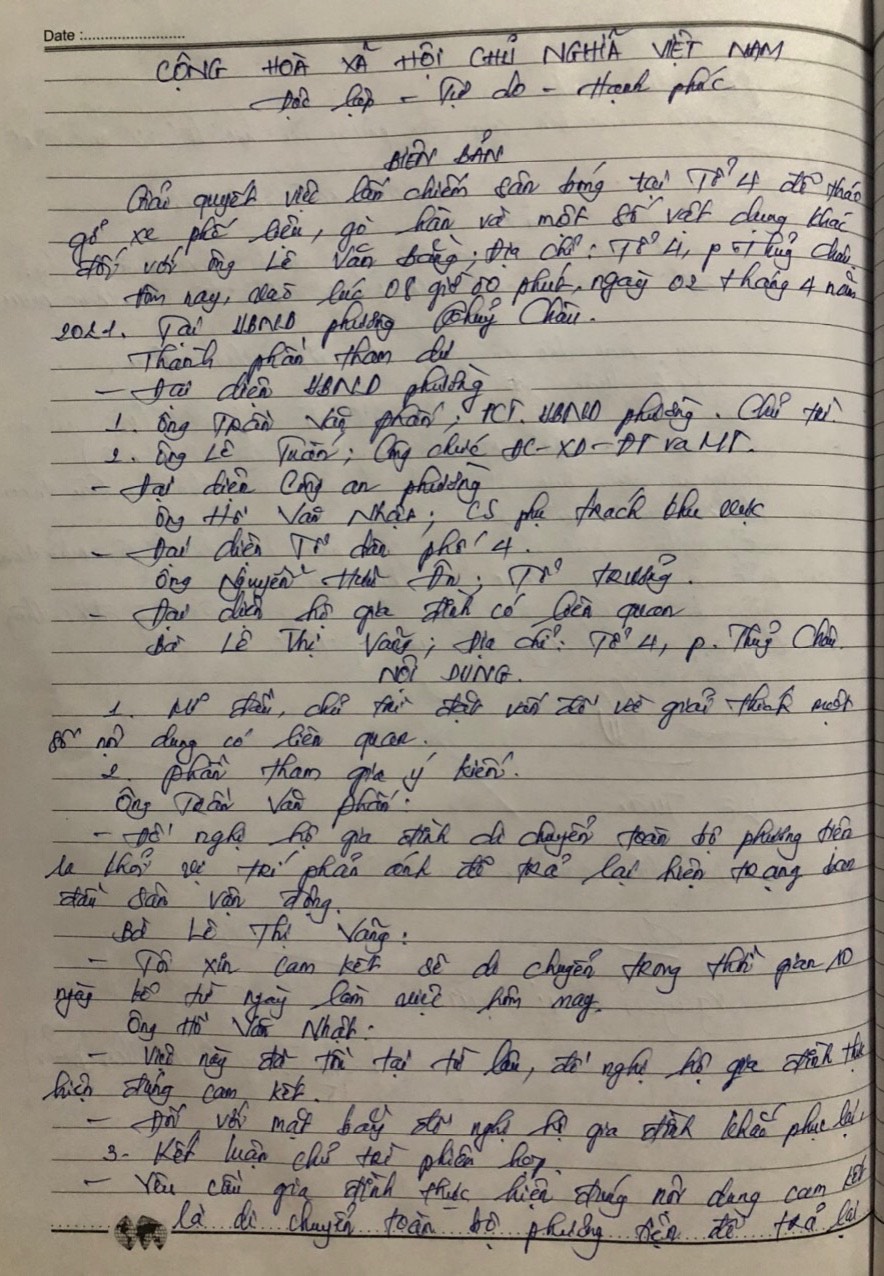 Date :
CỘNG HOÀ XÃ HỘI CHỦ NGHĨA VIỆT NAM
Độc lập - Tự do - Hạnh phúc
BIÊN BẢN
Giải quyết việc lấn chiếm sân bóng tại Tổ 4 để tháo
gỡ xe phế liệu, gò hàn và một số vật dụng khác
đối với ông Lê Văn Bằng; Địa chỉ: Tổ 4, p. Thuỷ Châu
Hôm nay, vào lúc 08 giờ 00 phút, ngày 02 tháng 4 năm
2021. Tại UBND phường Thuỷ Châu.
Thành phần tham dự
- Đại diện UBND phường
1. Ông Trần Văn Phấn; PCT. UBND phường. Chủ trì.
2. Ông Lê Tuấn; Công chức ĐC-XD-ĐT và MT.
- Đại diện Công an phường
Ông Hồ Văn Nhật; CS phụ trách khu vực
- Đại diện Tổ dân phố 4.
Ông Nguyễn Hữu Ân; Tổ trưởng.
- Đại diện hộ gia đình có liên quan
Bà Lê Thị Vang; Địa chỉ: Tổ 4, p. Thuỷ Châu.
NỘI DUNG.
1. Mở đầu, chủ trì đặt vấn đề và giải thích một
số nội dung có liên quan.
2. Phần tham gia ý kiến.
Ông Trần Văn Phấn:
- Đề nghị hộ gia đình di chuyển toàn bộ phương tiện
ra khỏi vị trí phản ánh để trả lại hiện trạng ban
đầu sân vận động.
Bà Lê Thị Vang:
- Tôi xin cam kết sẽ di chuyển trong thời gian 10
ngày kể từ ngày làm việc hôm nay.
Ông Hồ Văn Nhật:
- Việc này đã tồn tại từ lâu, đề nghị hộ gia đình thực
hiện đúng cam kết.
- Đối với mặt bằng đề nghị hộ gia đình khắc phục lại.
3- Kết luận chủ trì phiên họp.
- Yêu cầu gia đình thực hiện đúng nội dung cam kết
là di chuyển toàn bộ phương tiện để trả lại